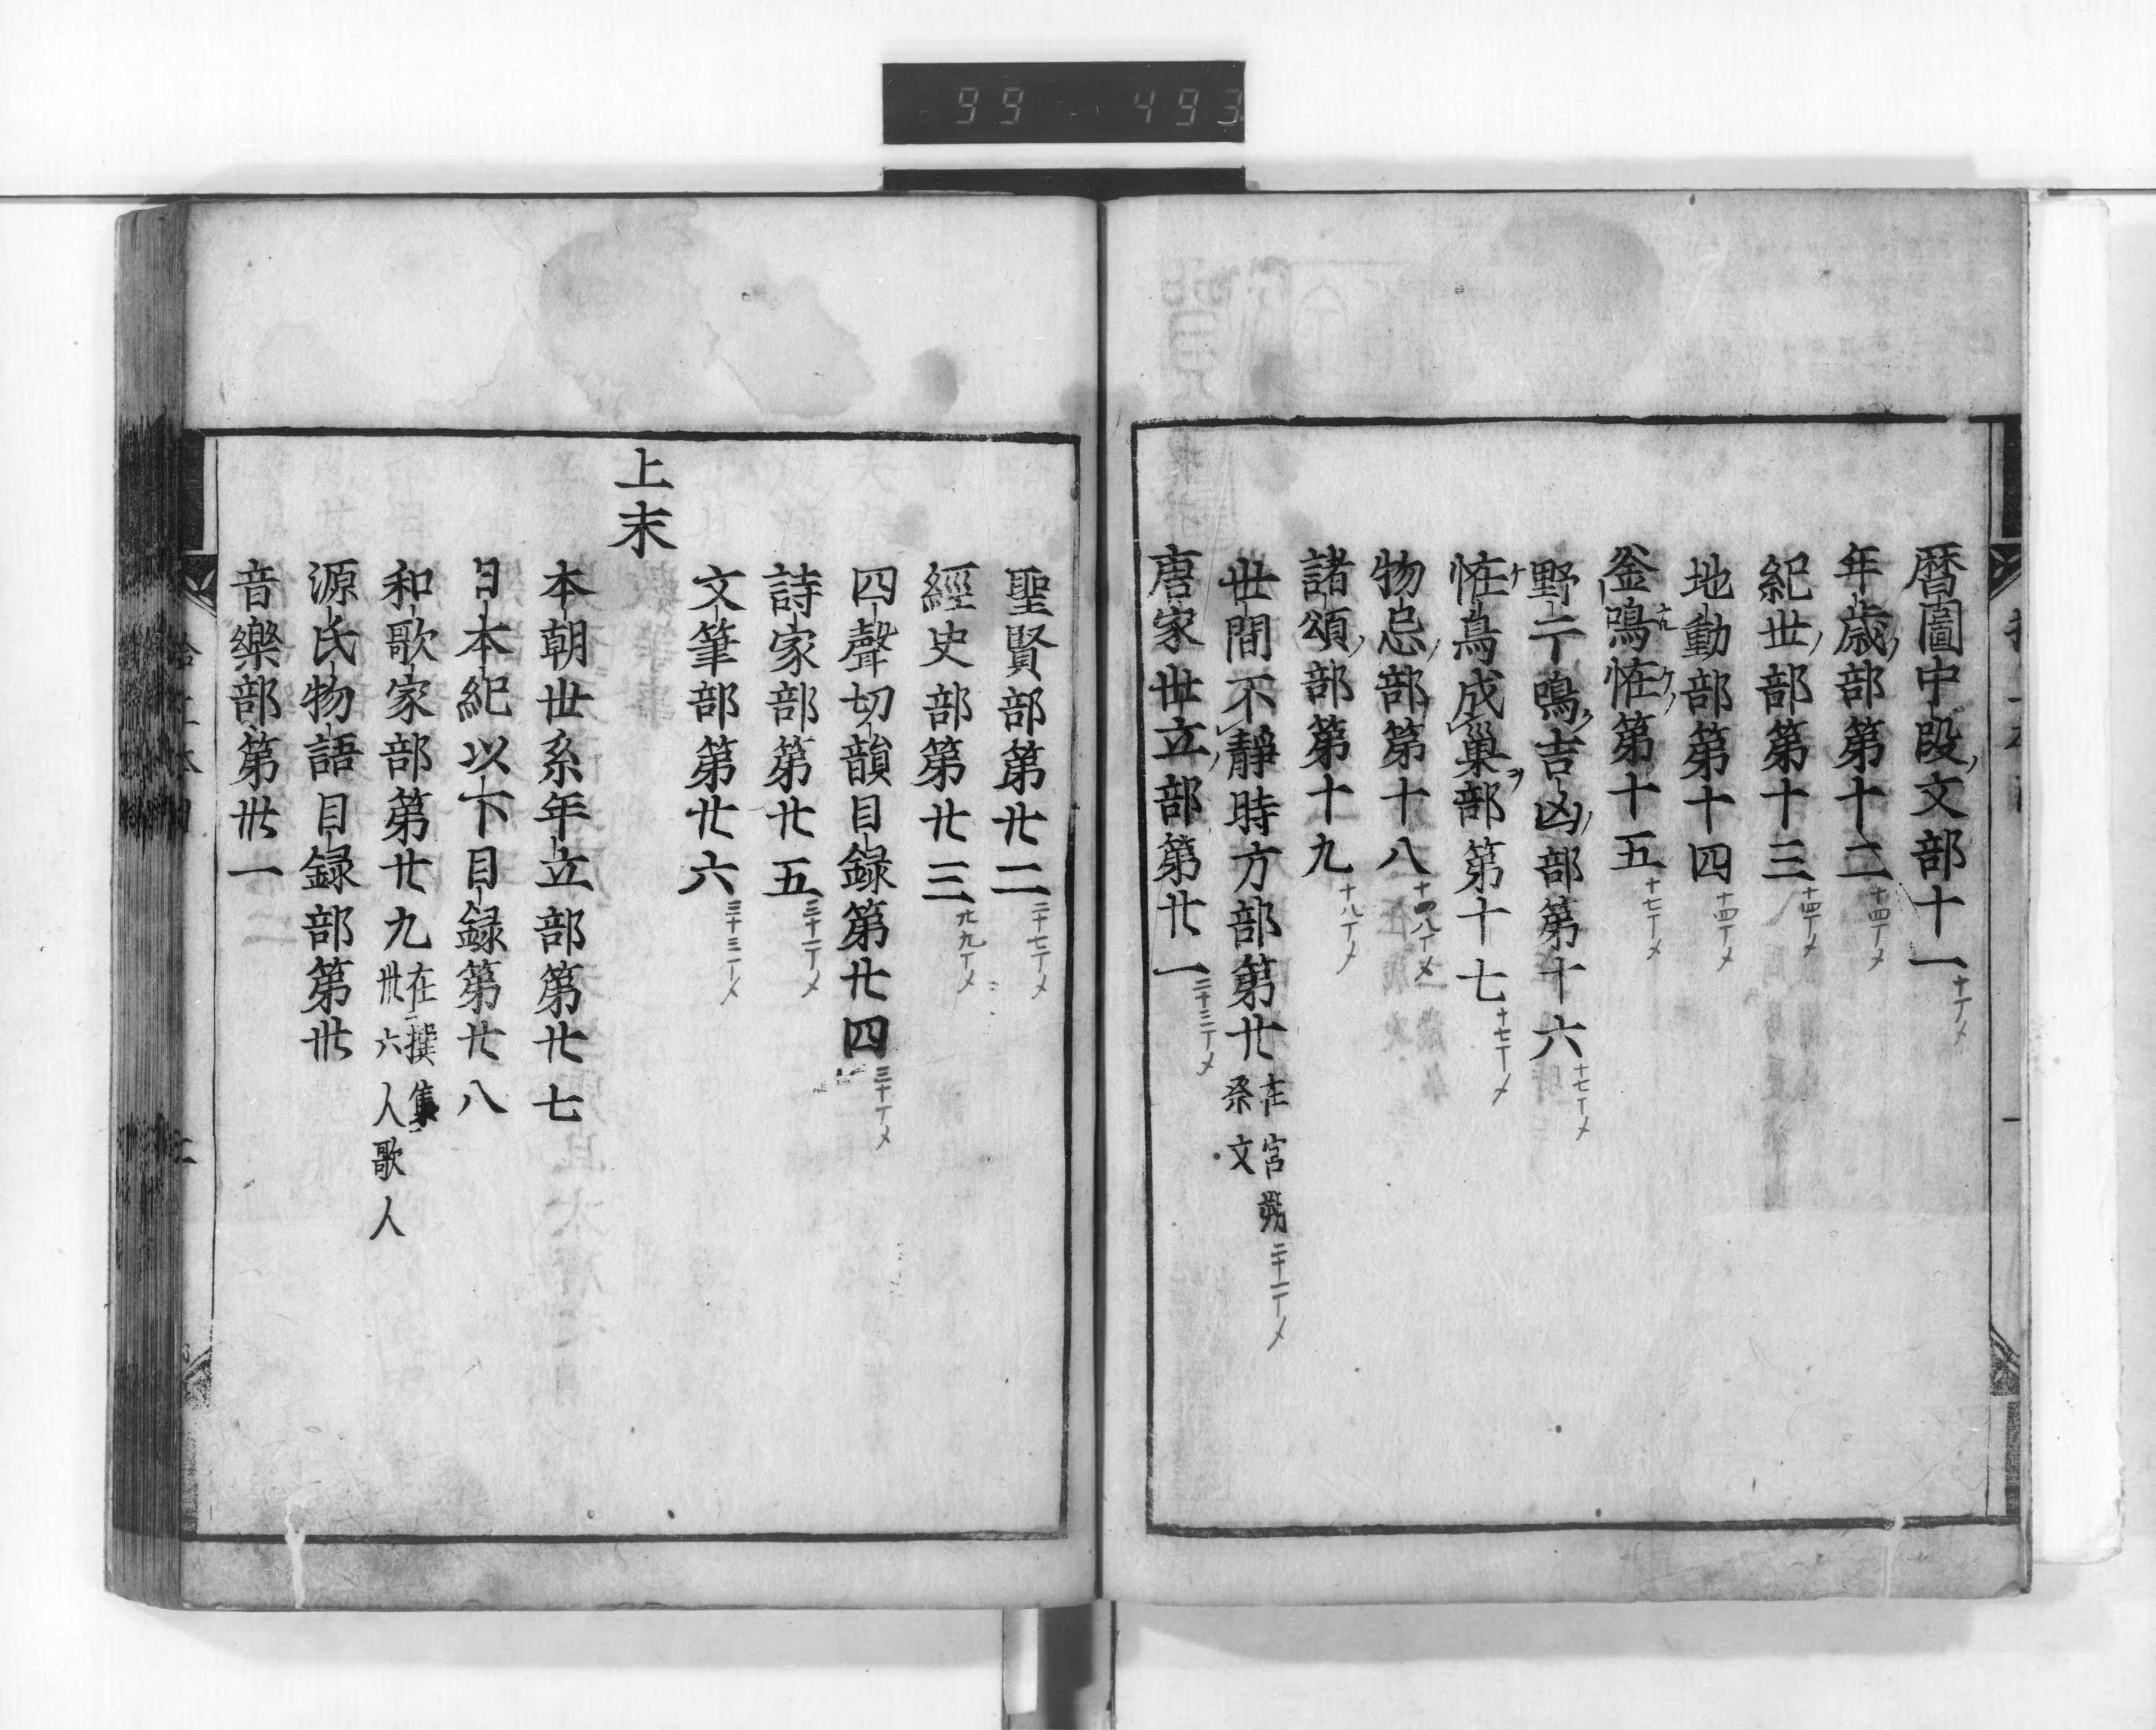 99 493
暦圖中段文部十一 十丁メ
年歳部第十二 十四丁メ
紀世部第十三 十四丁メ
地動部第十四 十四丁メ
釜鳴恠第十五 十七丁メ
野干鳴吉凶部第十六 十七丁メ
恠鳥成巣部第十七 十七丁メ
物忌部第十八
諸頌部第十九 十八丁メ
世間不靜時方部第廿 在宮
祭文 二十一丁メ
唐家世立部第廿一 二十三丁メ
聖賢部第廿二 二十七丁メ
經史部第廿三 廿九丁メ
四聲切韻目録第廿四 三十丁メ
詩家部第廿五 三十一丁メ
文筆部第廿六 三十三丁メ
上末
本朝世系年立部第廿七
日本紀以下目録第廿八
和歌家部第廿九 在撰集
卅六人歌人
源氏物語目録部第卅
音樂部第卅一